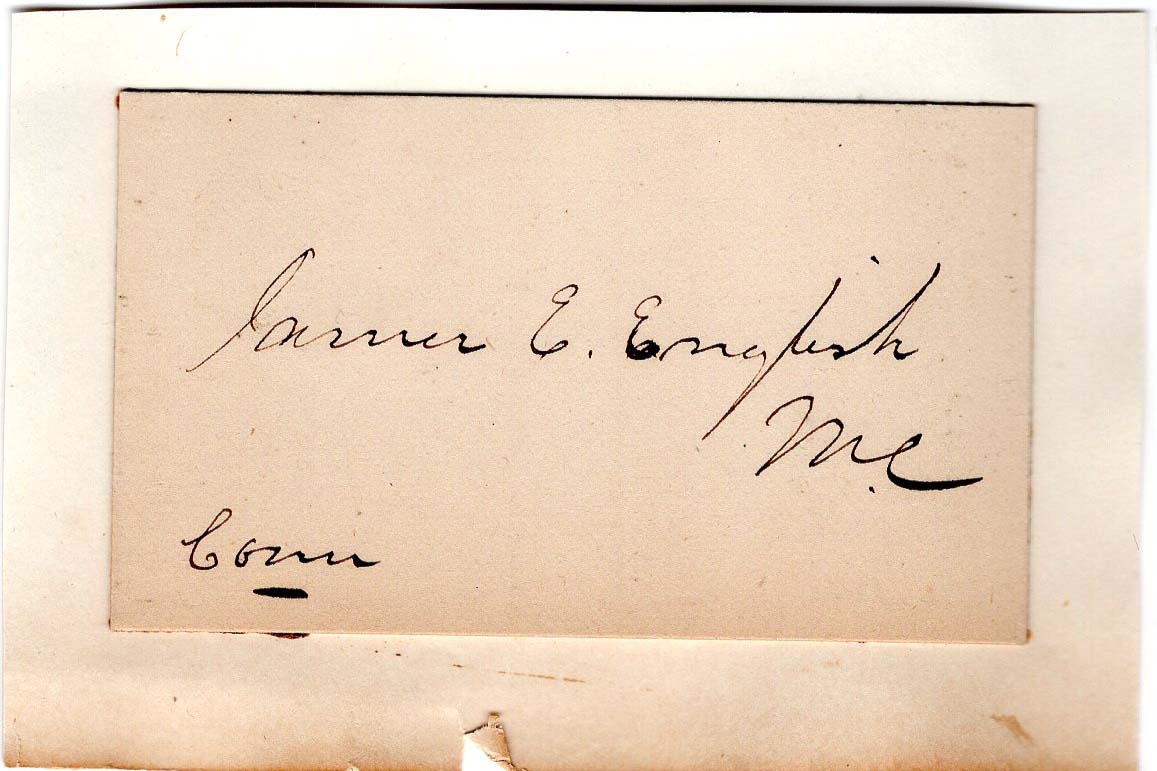 James E. English
M.C
Conn